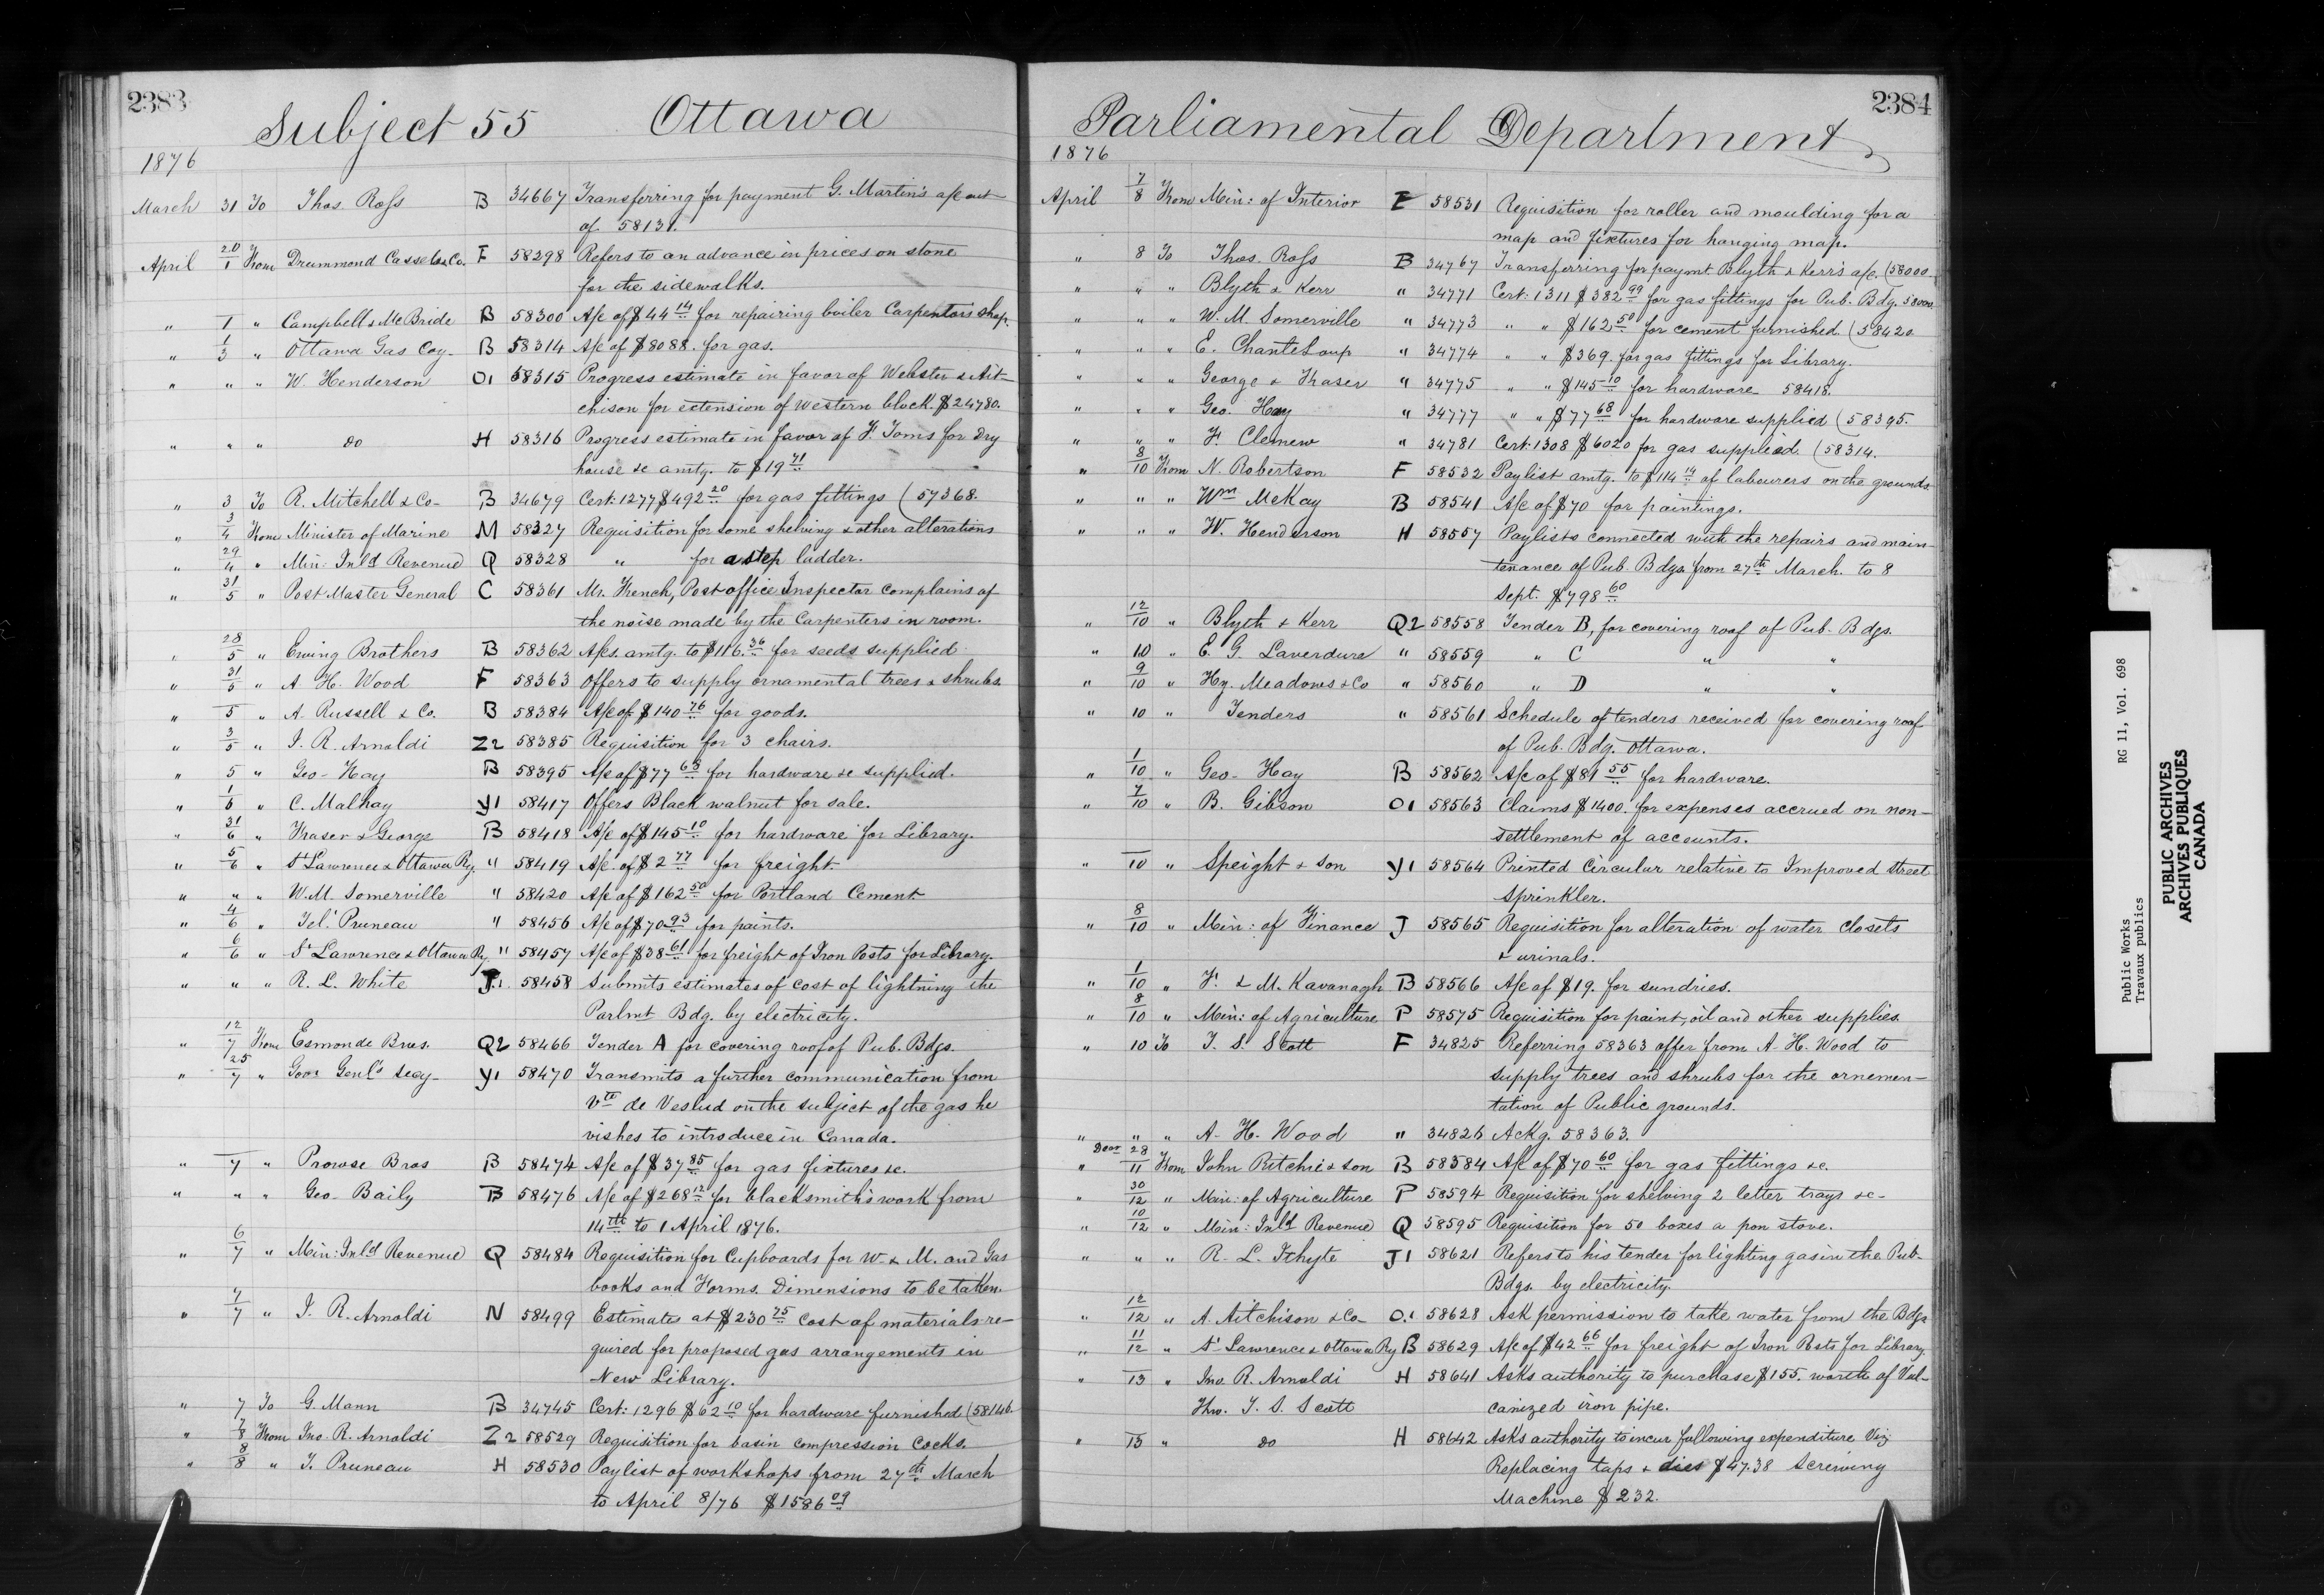 2383
Subject 55 Ottawa
1876
March 31 To Thos. Ross B 34667 Transferring for payment G. Martin's a/c out
of 58131.
April 20/1 From Drummond Cassels & Co. F 58298 Refers to an advance in prices on stone
for the sidewalks.
" 1 " Campbell & McBride B 58300 A/c of $44 14 for repairing boiler Carpentors shop.
" 1/3 " Ottawa Gas Coy. B 58314 A/c of $8088. for gas.
" " " W. Henderson O1 58315 Progress estimate in favor of Webster & Ait-
chison for extension of Western block. $24780.
" " " do H 58316 Progress estimate in favor of F. Toms for Dry
house &c amtg. to $19 71
" 3 To R. Mitchell & Co. B 34679 Cert: 1277 $492 20 for gas fittings (57368.
" 3/4 From Minister of Marine M 58327 Requisition for some shelving & other alterations
" 29/4 " Min: Inld Revenue Q 58328 " for a step ladder.
" 31/5 " Post Master General C 58361 Mr. French, Post office Inspector complains of
the noise made by the Carpenters in room.
" 28/5 " Ewing Brothers B 58362 A/cs. amtg. to $116.36 for seeds supplied.
" 31/5 " A. H. Wood F 58363 Offers to supply ornamental trees & shrubs.
" 5 " A. Russell & Co. B 58384 A/c of $140 76 for goods.
" 3/5 " J. R. Arnoldi Z2 58385 Requisition for 3 chairs.
" 5 " Geo. Hay B 58395 A/c of $77 68 for hardware &c supplied.
" 1/6 " C. Y1 58417 Offers Black walnut for sale.
" 31/6 " Fraser & George B 58418 A/c of $145 10 for hardware for Library.
" 5/6 " St Lawrence & Ottawa Ry. " 58419 A/c. of $2 77 for freight.
" " " W. M. Somerville " 58420 A/c of $162 50 for Portland Cement
" 4/6 " Tel. Pruneau " 58456 A/c of $70 93 for paints.
" 6/6 " St Lawrence & Ottawa Ry " 58457 A/c of $38 61 for freight of Iron Posts for Library.
" " " R. L. White J1 58458 Submits estimates of cost of lightning the
Parlmt Bdg. by electricity.
" 12/7 From Esmonde Bros. Q2 58466 Tender A for covering roof of Pub. Bdgs.
" 25/7 " Govr Genl's Secy. Y1 58470 Transmits a further communication from
Vte de on the subject of the gas he
vishes to introduce in Canada.
" 7 " Prowse Bros B 58474 A/c of $37 85 for gas fixtures &c.
" " " Geo. Baily B 58476 A/c of $268 12 for blacksmith's work from
14th to 1 April 1876.
" 6/7 " Min: Inld Revenue Q 58484 Requisition for Cupboards for W. & M. and Gas
books and Forms. Dimensions to be taken.
" 7/7 " J. R. Arnoldi N 58499 Estimates at $230 75 cost of materials re-
quired for proposed gas arrangements in
New Library.
" 7 To G. Mann B 34745 Cert: 1296 $62 10 for hardware furnished (58146.
" 7/8 From Jno. R. Arnoldi Z2 58529 Requisition for basin compression Cocks.
" 8/8 " T. Pruneau H 58530 Paylist of workshops from 27th March
to April 8/76 $1586 09
2384
Parliamental Department
1876
April 7/8 From Min: of Interior E 58531 Requisition for roller and moulding for a
map and fixtures for hanging map.
" 8 To Thos. Ross B 34767 Transferring for paymt Blyth & Kerr's a/c. (58000
" " " Blyth & Kerr " 34771 Cert: 1311 $382 99 for gas fittings for Pub. Bdg. 58000
" " " W. M. Somerville " 34773 " " $162 50 for cement furnished. (58420
" " " E. Chanteloup " 34774 " " $369. for gas fittings for Library.
" " " George & Fraser " 34775 " " $145 10 for hardware 58418.
" " " Geo. Hay " 34777 " " $77 68 for hardware supplied (58395.
" " " F. Clemew " 34781 Cert. 1308 $6020 for gas supplied. (58314.
" 8/10 From N. Robertson F 58532 Paylist amtg. to $114 14 of labourers on the grounds
" " " Wm McKay B 58541 A/c of $70 for paintings.
" " " W. Henderson H 58557 Paylists connected with the repairs and main-
tenance of Pub. Bdgs. from 27th March. to 8
Sept. $798 60
" 12/10 " Blyth & Kerr Q2 58558 Tender B, for covering roof of Pub. Bdgs.
" 10 " E. G. Laverdure " 58559 " C " "
" 9/10 " Hy. Meadows & Co " 58560 " D " "
" 10 " Tenders " 58561 Schedule of tenders received for covering roof
of Pub. Bdg. Ottawa.
" 1/10 " Geo. Hay B 58562 A/c of $81 55 for hardware.
" 7/10 " B. Gibson O1 58563 Claims $1400. for expenses accrued on non-
settlement of accounts.
" 10 " Speight & Son Y1 58564 Printed Circular relative to Improved Street
Sprinkler.
" 8/10 " Min: of Finance J 58565 Requisition for alteration of water closets
& urinals.
" 1/10 " F. & M. Kavanagh B 58566 A/c of $19. for sundries.
" 8/10 " Min: of Agriculture P 58575 Requisition for paint, oil and other supplies.
" 10 To T. S. Scott F 34825 Referring 58363 offer from A. H. Wood to
supply trees and shrubs for the ornemen-
tation of Public grounds.
" " " A. H. Wood " 34826 Ackg. 58363.
" Decr 28/11 From John Ritchie & Son B 58584 A/c of $70 60 for gas fittings &c.
" 30/12 " Min: of Agriculture P 58594 Requisition for shelving 2 letter trays &c-
" 10/12 " Min: Inld Revenue Q 58595 Requisition for 50 boxes a pon stove.
" " " R. L. J1 58621 Refers to his tender for lighting gas in the Pub-
Bdgs. by electricity.
" 12/12 " A. Aitchison & Co. O1 58628 Ask permission to take water from the Bdgs
" 11/12 " St Lawrence & Ottawa Ry B 58629 A/c of $42 66 for freight of Iron Posts for Library
" 13 " Jno. R. Arnoldi H 58641 Asks authority to purchase $155. worth of Vul-
Thro. T. S. Scott canized iron pipe.
" 13 " do H 58642 Asks authority to incur following expenditure Viz
Replacing taps & dies $47.38 Screwing
Machine $232.
Public Works RG 11, Vol. 698
Travaux publics
PUBLIC ARCHIVES
ARCHIVES PUBLIQUES
CANADA